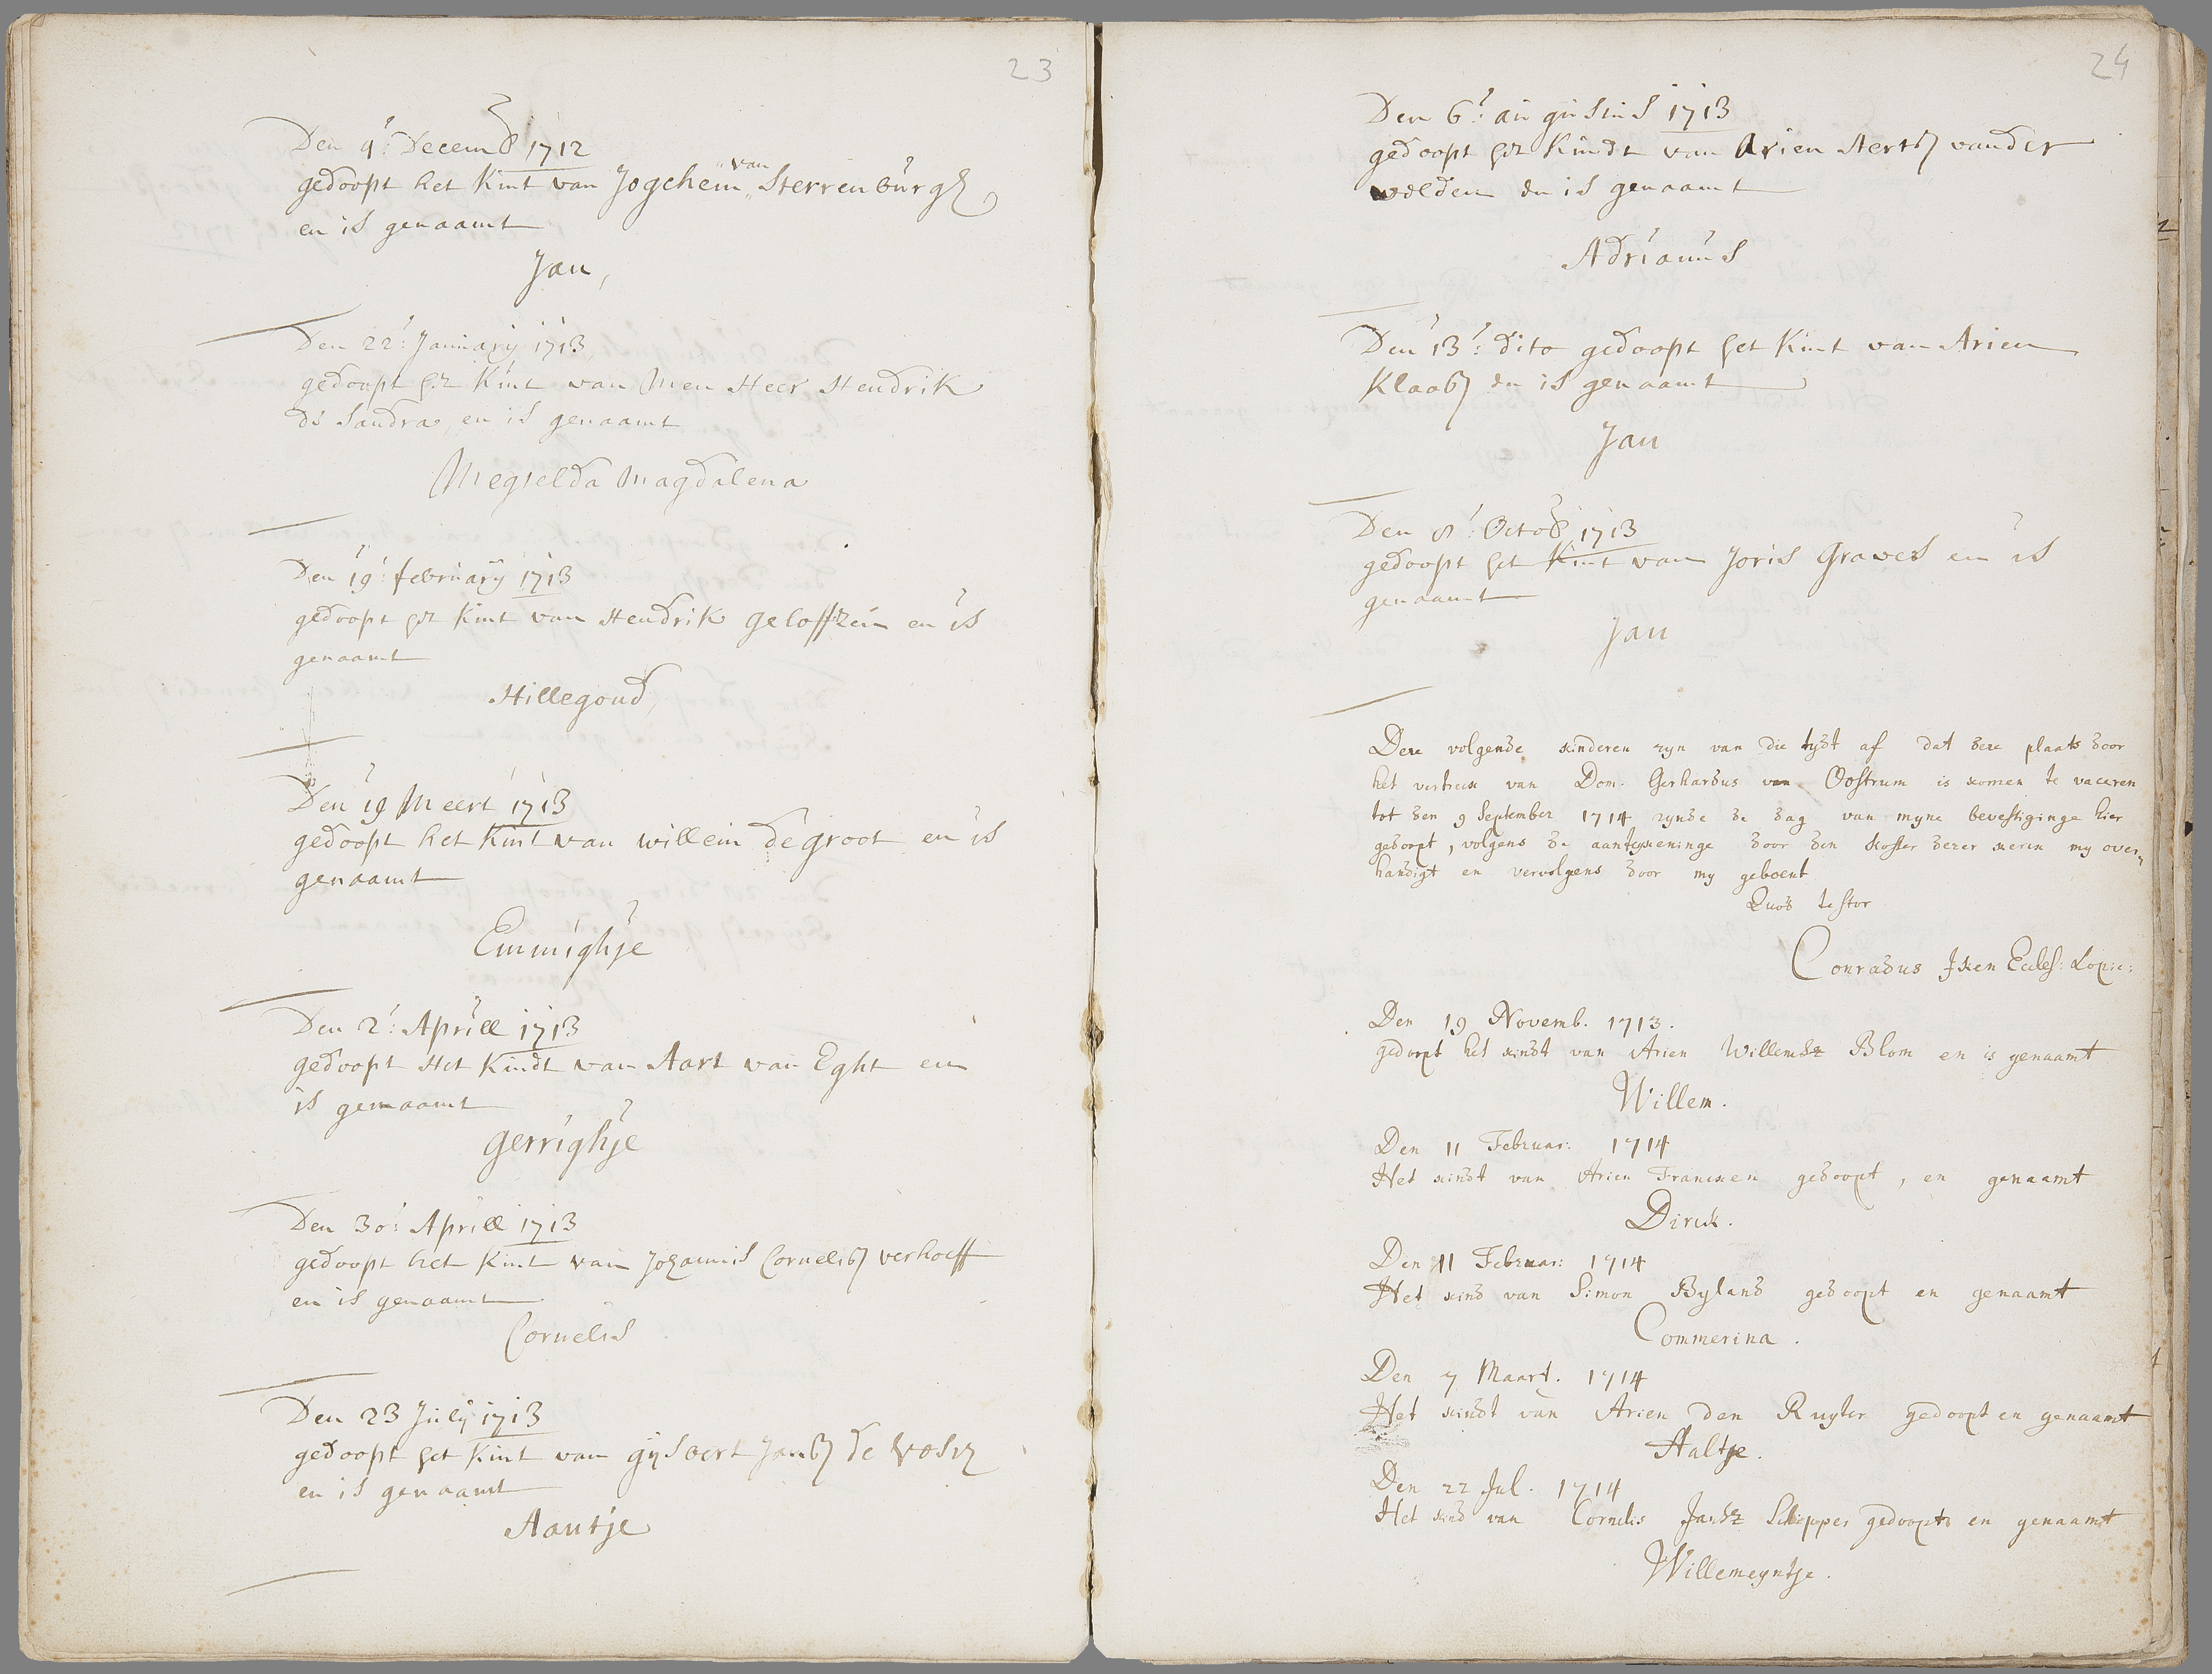 23
Den 9: Decemb 1712
gedoopt het Kint van Jogchem van Sterrenburgh
en is genaamt
Jan,
Den 22: Januarij 1713
gedoopt het Kint van Men Heer Hendrik
de Sandra, en is genaamt
Megtelda Magdalena
Den 19: februarij 1713
gedoopt het Kint van Hendrik geloffzen en is
genaamt
Hillegond,
Den 19 Meert 1713
gedoopt het Kint van willem de groot en is
genaamt
Emmighje
Den 2: Aprill 1713
gedoopt Het Kindt van Aart van Eght en
is genaamt
gerrighje
Den 30: Aprill 1713
gedoopt het Kint van Johannis Cornelisz verhoeff
en is genaamt
Cornelis
Den 23 July 1713
gedoopt het Kint van gijsbert Jansz de Vos
en is genaamt
Aantje
24
Den 6: augustus 1713
gedoopt het Kindt van Arien Aertsz vander
welden en is genaamt
Adrianus
Den 13: dito gedoopt het Kint van Arien
Klaasz en is genaamt
Jan
Den 8: Octob 1713
gedoopt het Kint van Joris Graves en is
genaamt
Jan
Deze volgende kinderen zyn van die tydt af dat deze plaats door
het vertreck van Dom. Gerhardus van Oostrum is komen te vaceren
tot den 9 September 1714 zynde de dag van myne bevestiginge hier
gedoopt, volgens de aantekeninge door den Koster dezer kerke my over-
handigt en vervolgens door my geboekt
Quod testor
Conradus Iken Eccles: Lopic:
Den 19 Novemb. 1713.
gedoopt het kindt van Arien Willemsz Blom en is genaamt
Willem.
Den 11 Februar: 1714
Het kindt van Arien Francken gedoopt, en genaamt
Dirck.
Den 11 Februar: 1714
Het kind van Simon Byland gedoopt en genaamt
Commerina.
Den 7 Maart. 1714
Het kindt van Arien den Ruyter gedoopt en genaamt
Aaltje.
Den 22 Jul. 1714
Het kind van Cornelis Jansz Schipper gedoopt en genaamt
Willemeyntje.